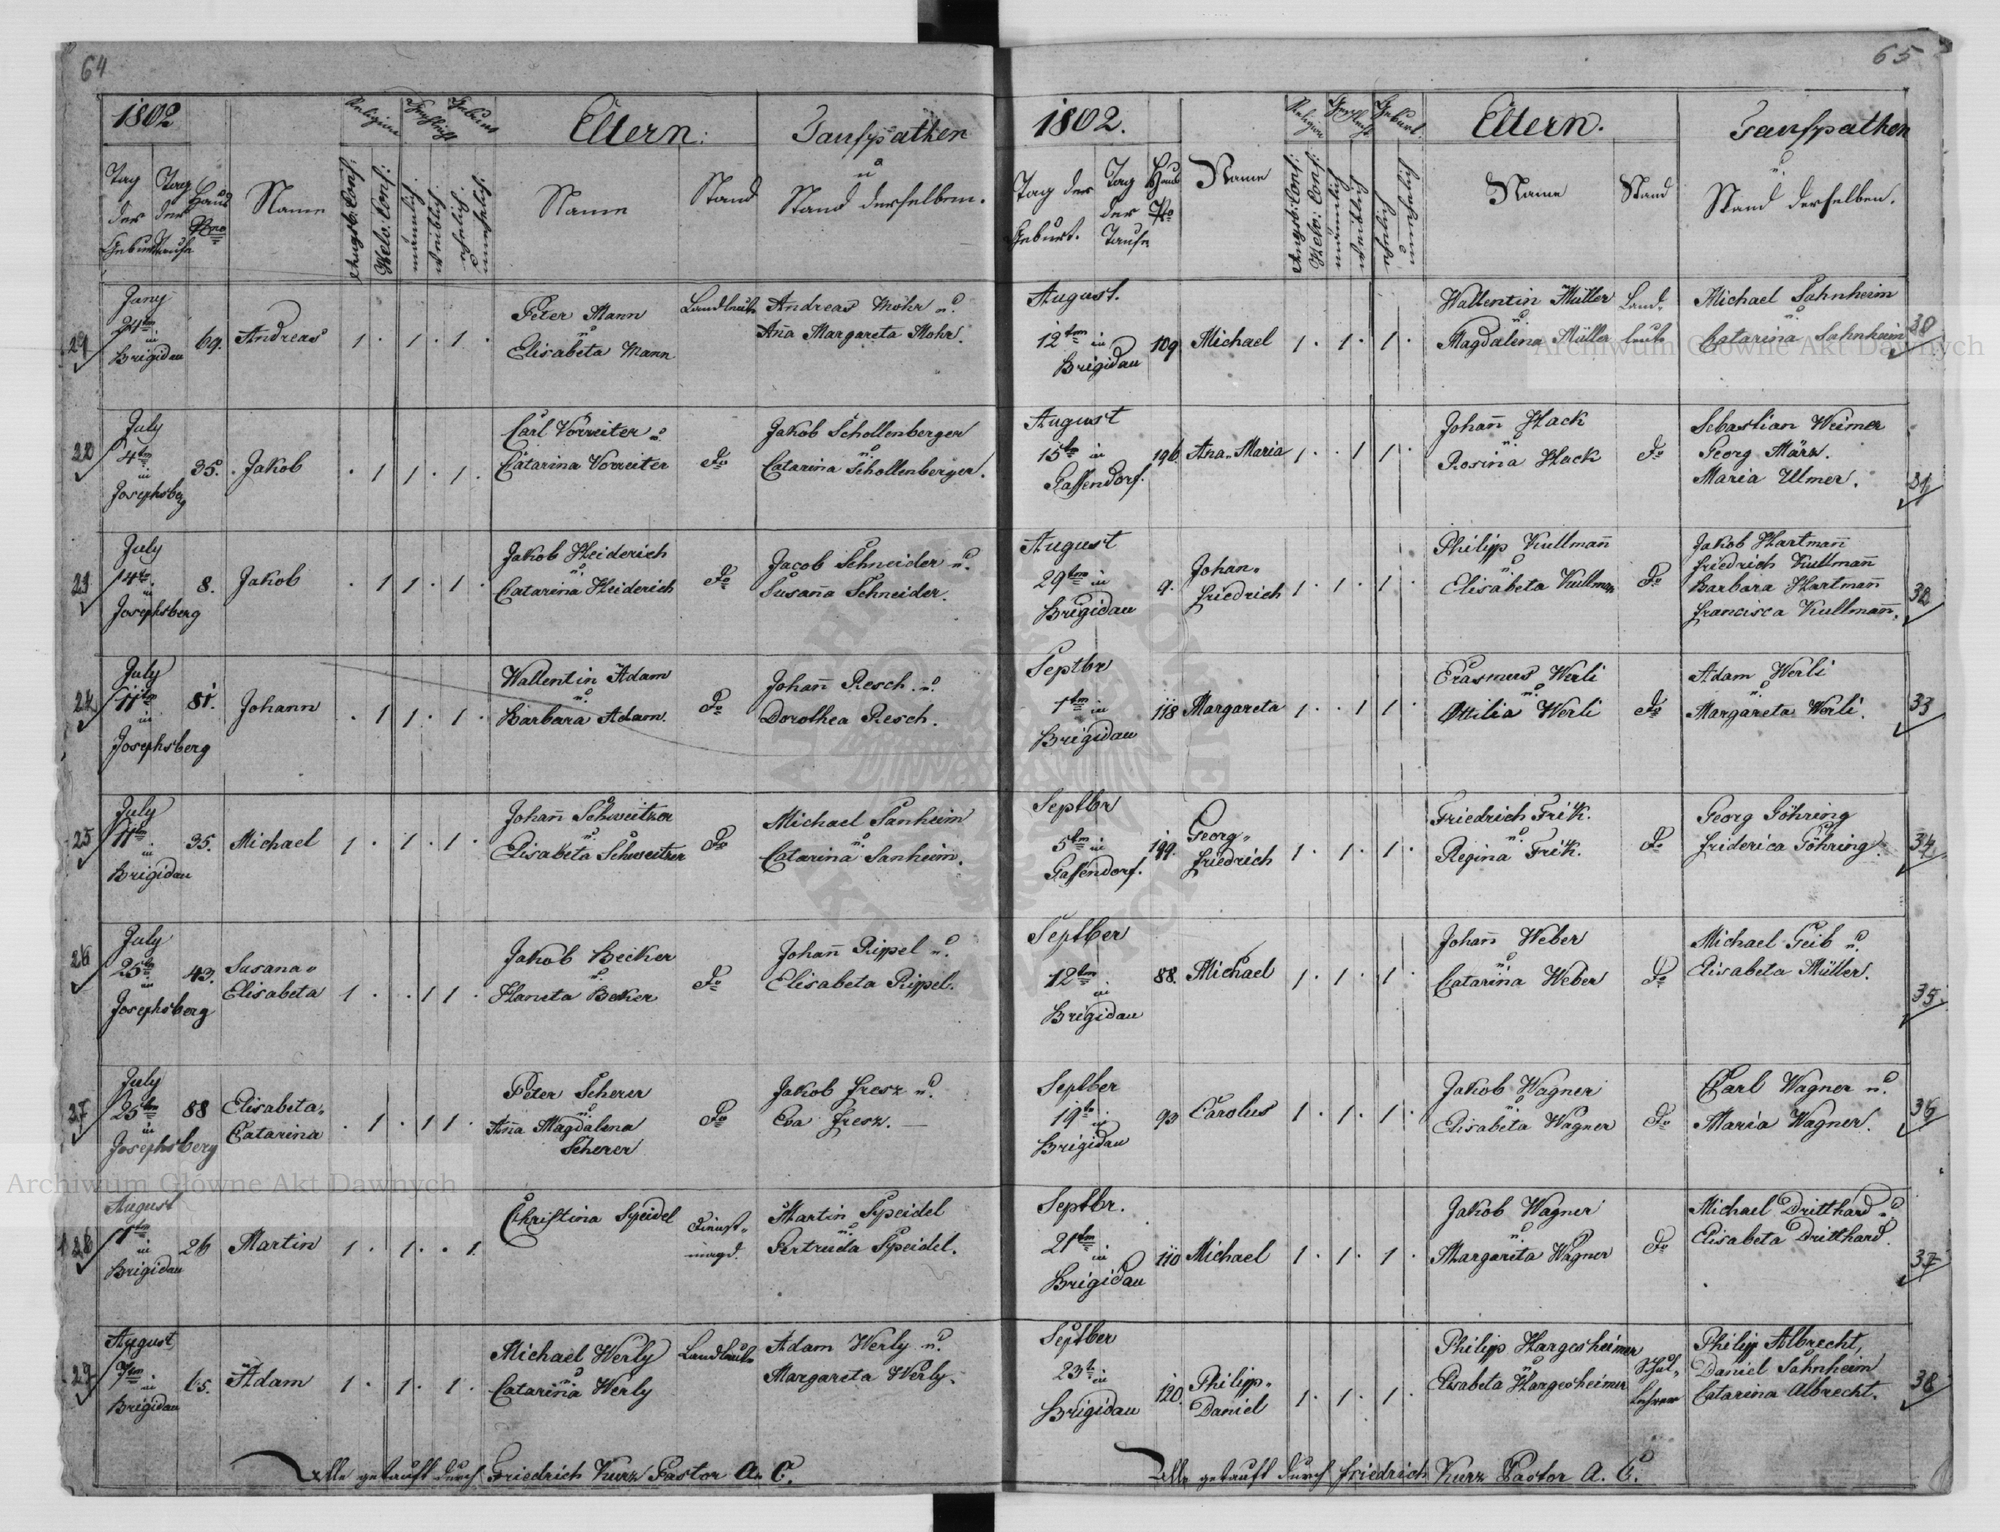 64
1802
Religion
Geschlecht
Geburt
Eltern:
Taufpathen
u
Stand derselben.
Tag der Geburt
Tag der Taufe
Haus Nro
Name
Augsb: Conf:
Helv: Conf:
männlich
weiblich
ehelich
unehelich
Name
Stand
21
Juny
24ten
in
Brigidau
69.
Andreas
1 . 1 . 1 .
Peter Mann
u.
Elisabeta Mann
Landleute
Andreas Mohr u.
Aña Margareta Mohr.
22
July
4ten
in
Josephsbg
35.
Jakob
. 1 1 . 1 .
Carl Vorreiter u.
Catarina Vorreiter
do
Jakob Schollenberger
u.
Catarina Schollenberger.
23
July
14ten
in
Josephsberg
8.
Jakob
. 1 1 . 1 .
Jakob Heiderich
u.
Catarina Heiderich
do
Jacob Schneider u.
Susaña Schneider.
24
July
11ten
in
Josephsberg
81.
Johann
. 1 1 . 1 .
Wallentin Adam
u.
Barbara Adam.
do
Johañ Resch. u.
Dorothea Resch.
25
July
11ten
in
Brigidau
35.
Michael
1 . 1 . 1 .
Johañ Schweitzer
u.
Elisabeta Schweitzer
do
Michael Sanheim
u.
Catarina Sanheim.
26
July
25ten
in
Josephsberg
43.
Susana-
Elisabeta
1 . . 1 1 .
Jakob Becker
u.
Haneta Beker
do
Johañ Rippel u.
Elisabeta Rippel.
27
July
25ten
in
Josephsberg
88
Elisabeta-
Catarina
. 1 . 1 1 .
Peter Scherer
u.
Aña Magdalena
Scherer
do
Jakob Fresz u.
Eva Fresz.
28
August
1ten
in
Brigidau
26
Martin
1 . 1 . . 1
Christina Speidel
Dienst-
magd.
Martin Speidel
u.
Gertruda Speidel.
29
August
7ten
in
Brigidau
65.
Adam
1 . 1 . 1 .
Michael Werly
u.
Catarina Werly
Landleute
Adam Werly u.
Margareta Werly.
Alle getauft durch Friedrich Kurz Pastor A. C.
65
1802.
Religion
Geschlecht
Geburt.
Eltern.
Taufpathen
u.
Stand derselben.
Tag der Geburt.
Tag der Taufe
Haus No
Name
Augsb: Conf:
Helv: Conf:
männlich
weiblich
ehelich
unehelich
Name
Stand
August.
12ten in
Brigidau
109.
Michael
1 . 1 . 1 .
Wallentin Müller
u.
Magdalena Müller
Land-
leute
Michael Sahnheim
u.
Catarina Sahnheim
30
August
15ten in
Gassendorf.
196.
Ana-Maria
1 . . 1 1 .
Johañ Hack
u.
Rosina Hack
do
Sebastian Weimer
Georg März.
Maria Ulmer.
31
August
29ten in
Brigidau
9.
Johan-
Friedrich
1 . 1 . 1 .
Philipp Kullmañ
u.
Elisabeta Kullman
do
Jakob Hartmañ
Friedrich Kullmañ
Barbara Hartmañ
Francisca Kullmañ.
32
Septbr
1ten in
Brigidau
118
Margareta
1 . . 1 1 .
Erasmus Werli
u.
Ottilia Werli
do
Adam Werli
u.
Margareta Werli.
33
Septbr
5ten in
Gassendorf.
199.
Georg-
Friedrich
1 . 1 . 1 .
Friedrich Frik.
u.
Regina Frik.
do
Georg Göhring
u
Friderica Göhring.
34
Septber
12ten
in
Brigidau
88.
Michael
1 . 1 . 1 .
Johañ Weber
u.
Catarina Weber
do
Michael Geib u.
Elisabeta Müller.
35
Septber
19ten
in
Brigidau
93
Carolus
1 . 1 . 1 .
Jakob Wagner
u.
Elisabeta Wagner
do
Carl Wagner u.
Maria Wagner.
36
Septbr.
21ten
in
Brigidau
110
Michael
1 . 1 . 1 .
Jakob Wagner
u.
Margareta Wagner
do
Michael Dritthard u.
Elisabeta Dritthard.
37
Septber
23ten in
Brigidau
120.
Philipp-
Daniel
1 . 1 . 1 .
Philipp Hargesheimer
u.
Elisabeta Hargesheimer
Schul-
lehrer
Philipp Albrecht,
Daniel Sahnheim
Catarina Albrecht.
38
Alle getauft durch Friedrich Kurz Pastor A. C.
Archiwum Główne Akt Dawnych
Archiwum Główne Akt Dawnych
ARCHIWUM GŁÓWNE AKT DAWNYCH